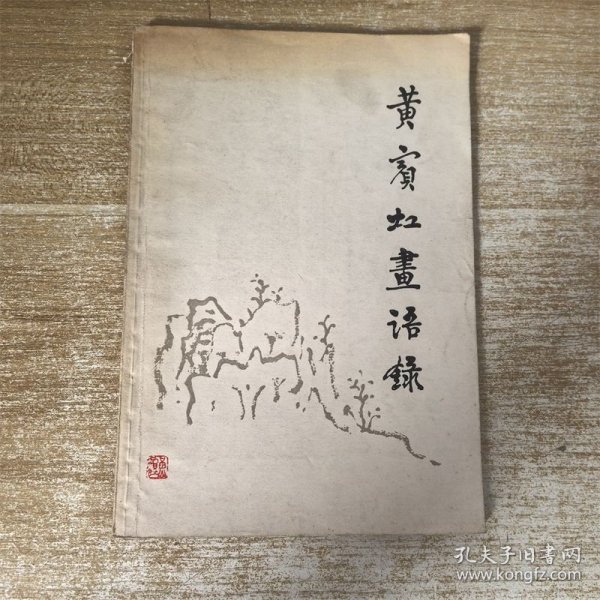 黄賓虹畫語録
孔夫子旧書网
www.kongfz.com